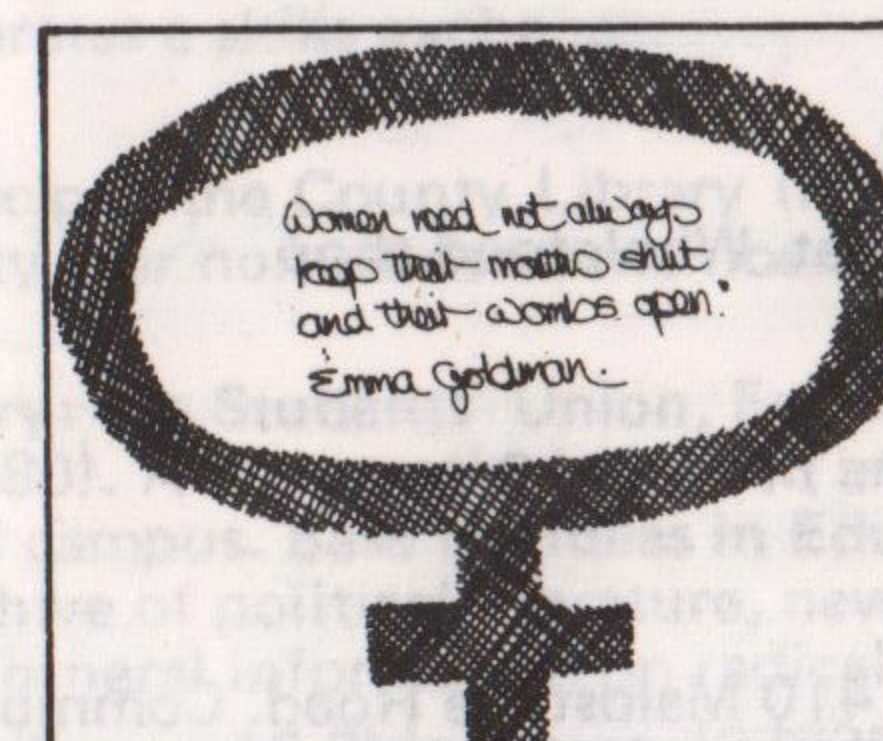 Women need not always
keep their mouths shut
and their wombs open."
Emma Goldman.